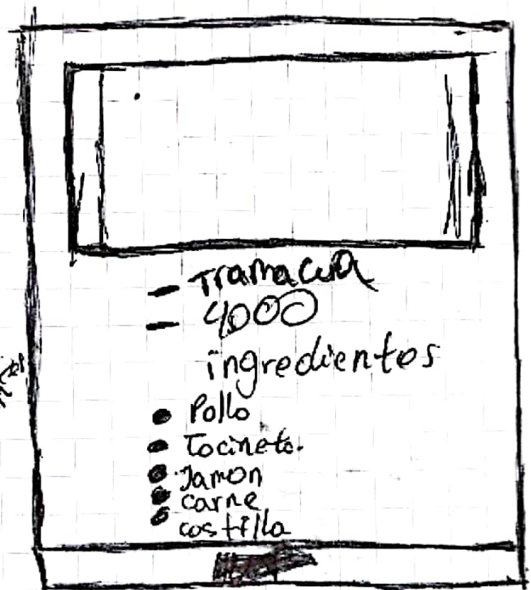 - Tramacua
- 4000
ingredientos
• Pollo
• Tocineta.
• Jamon
• carne
• costilla